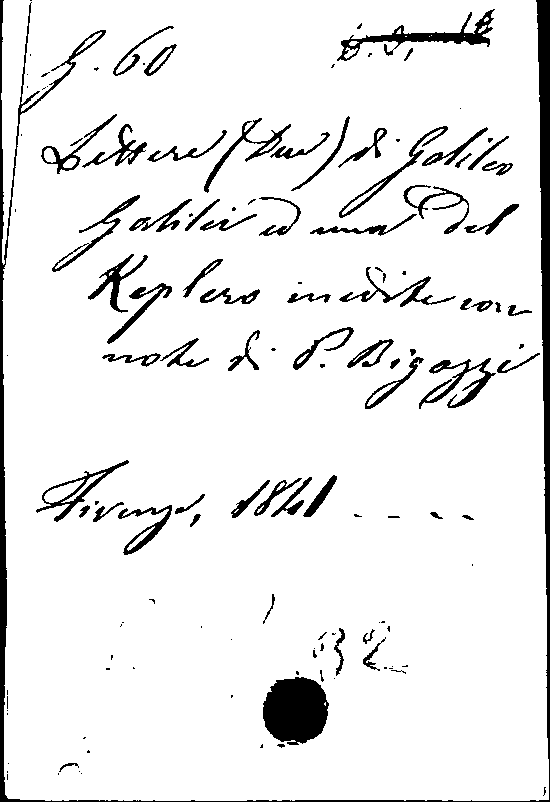 G. 60
Lettere (Due) di Galileo
Galilei ed una del
Keplero inedite con
note di P. Bigazzi
Firenze, 1841 - - - -
32